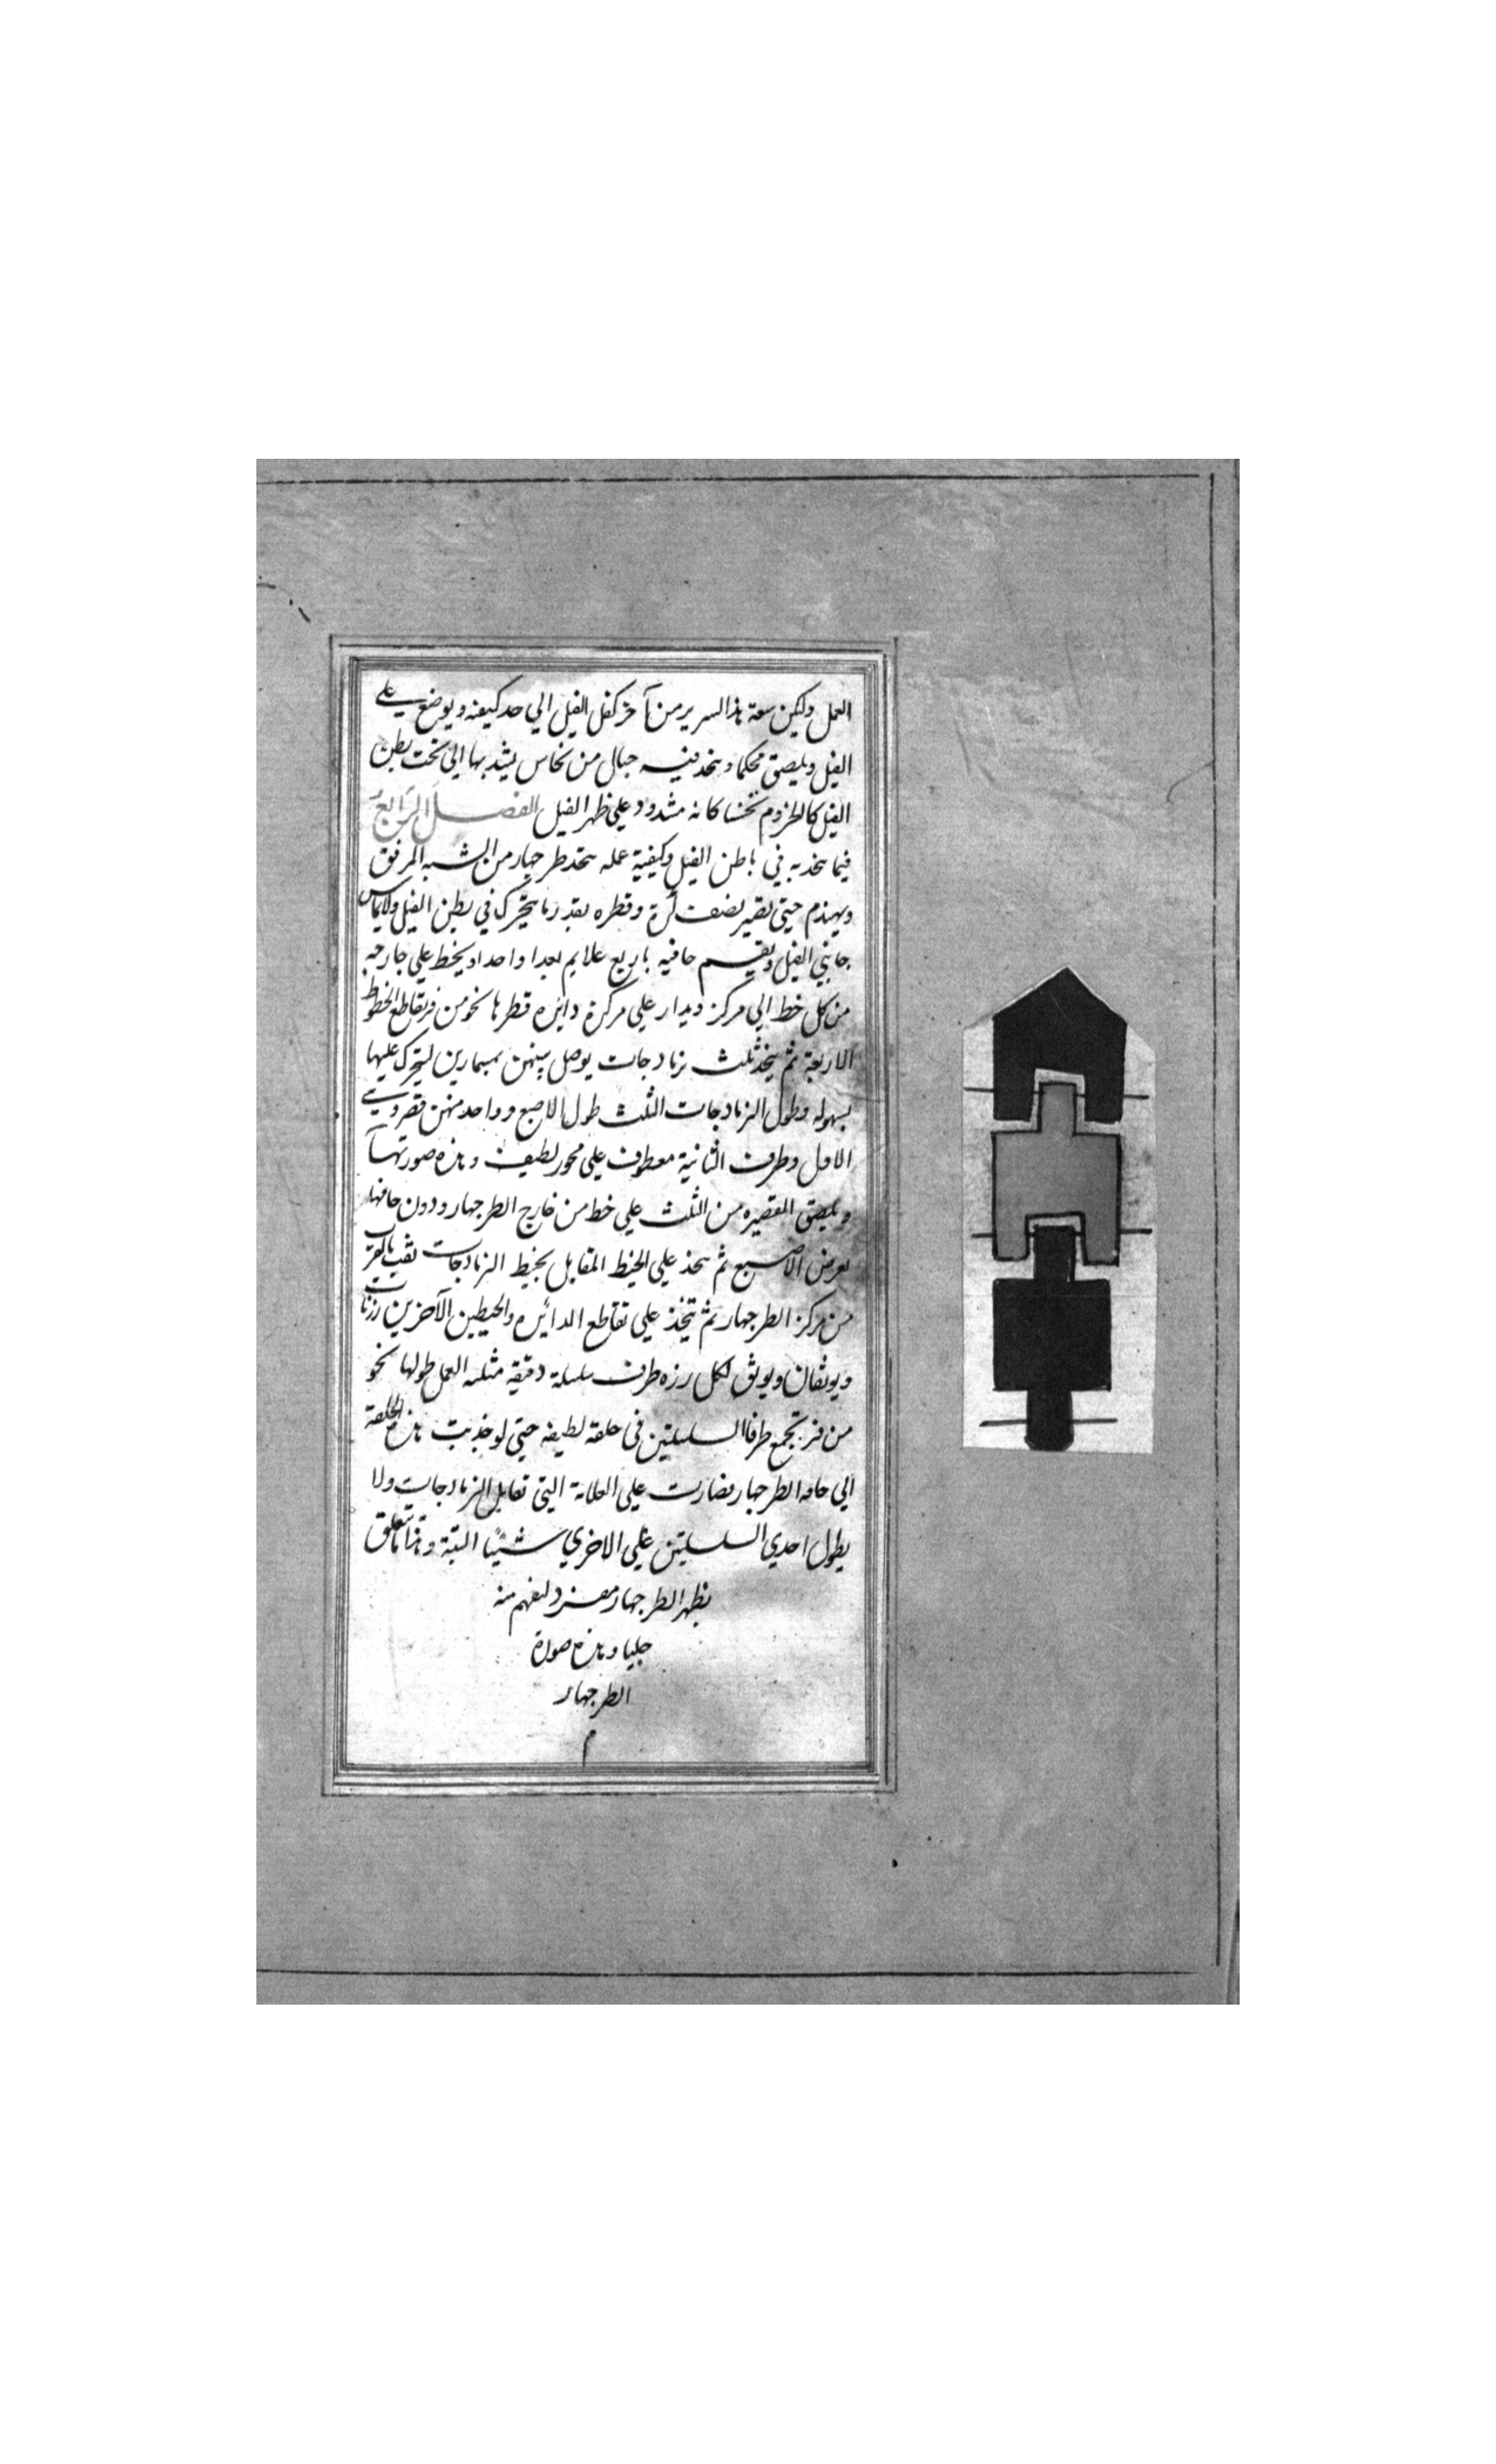 العمل وليكن سعة هذا السرير من آخر كفل الفيل الي حد كتفه ويوضع علي
الفيل ويلصق محكما ويتخذ فيه حبال من نحاس يشد بها الي تحت بطن
الفيل كالحزوم تحسا كانه مشدود علي ظهر الفيل الفصل الرابع
فيما يتخذ به في باطن الفيل وكيفية عمله يتخذ طرجهار من الشبه المرفق
ويهندم حتي تصير نصف كرة وقطره بقدر ما يتحرك في بطن الفيل ولا يماس
جانبي الفيل ويقسم حافيه باربع علايم بعدا واحدا ويخط علي خارجه
من كل خط الي مركز ويدار علي مركزه دايره قطرها نحو من فتر يقاطع الخطوط
الاربعة ثم يتخذ ثلث نرمادجات يوصل بينهن بمسمارين ليتحرك عليها
بسهوله وطول النرمادجات الثلث طول الاصبع وواحد منهن قصر وهي
الاول وطرف الثانية معطوف علي محور لطيف وهذه صورتها
ويلصق القصيره من الثلث علي خط من خارج الطرجهار ودون حافتها
بعرض الاصبع ثم يتخذ علي الخيط المقابل بخيط النرمادجات ثقب بالقرب
من مركز الطرجهار ثم يتخذ علي تقاطع الدائره والخيطين الآخرين رزتان
ويوثقان ويوثق لكل رزه طرف سلسلة دقيقة مثلثه العمل طولها نحو
من فتر تجمع طرفا السلسلتين في حلقة لطيفه حتي لو جذبت هذه الحلقة
الي حافه الطرجهار فصارت علي العلامة التي تقابل النرمادجات ولا
يطول احدي السلسلتين علي الاخري شيئا البتة وهذا ما يتعلق
بظهر الطرجهار مفرد ليفهم منه
جليا وهذه صورة
الطرجهار
م